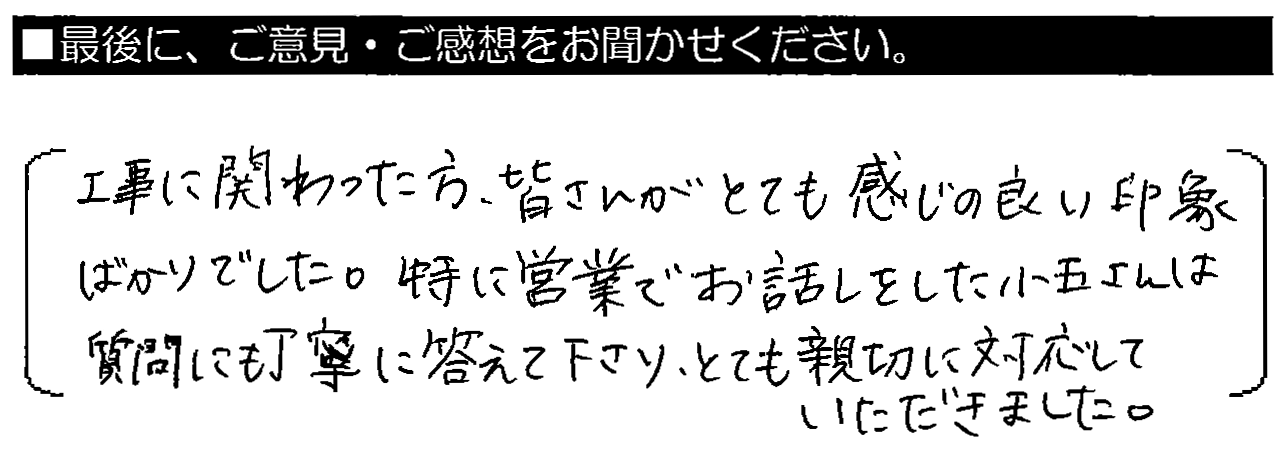 ■最後に、ご意見・ご感想をお聞かせください。
工事に関わった方、皆さんがとても感じの良い印象
ばかりでした。特に営業でお話しをした小五さんは
質問にも丁寧に答えて下さり、とても親切に対応して
いただだきました。